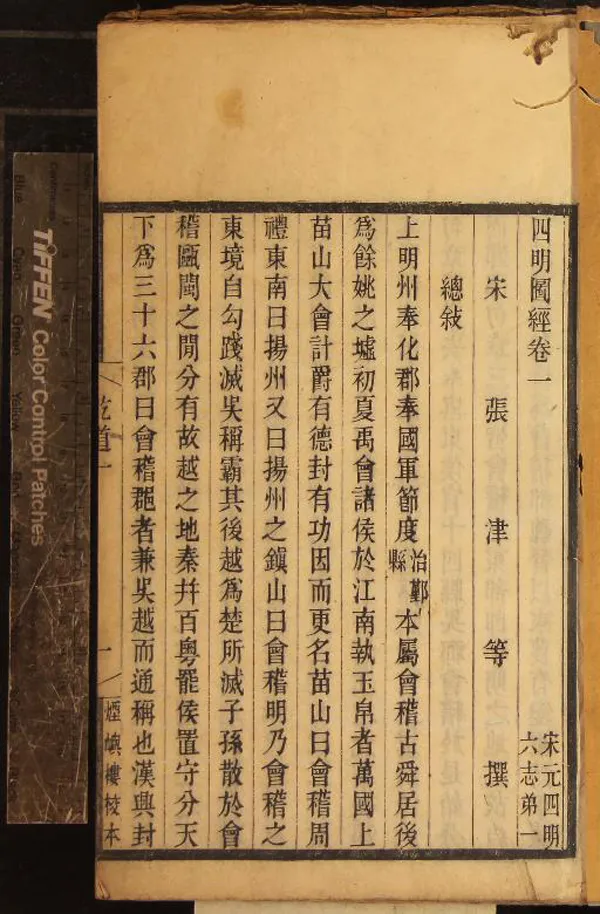 四明圖經卷一
宋元四明
六志弟一
宋張津等撰
總敍
上明州奉化郡奉國軍節度治鄞縣本屬會稽古舜居後
爲餘姚之墟初夏禹會諸侯於江南執玉帛者萬國上
苗山大會計爵有德封有功因而更名苗山曰會稽周
禮東南曰揚州又曰揚州之鎭山曰會稽明乃會稽之
東境自勾踐滅吳稱霸其後越爲楚所滅子孫散於會
稽甌閩之間分有故越之地秦幷百粤罷侯置守分天
下爲三十六郡曰會稽郡者兼吳越而通稱也漢興封
乾道一
一
煙嶼樓校本
TIFFEN Color Control Patches
Blue
Cyan
Green
Yellow